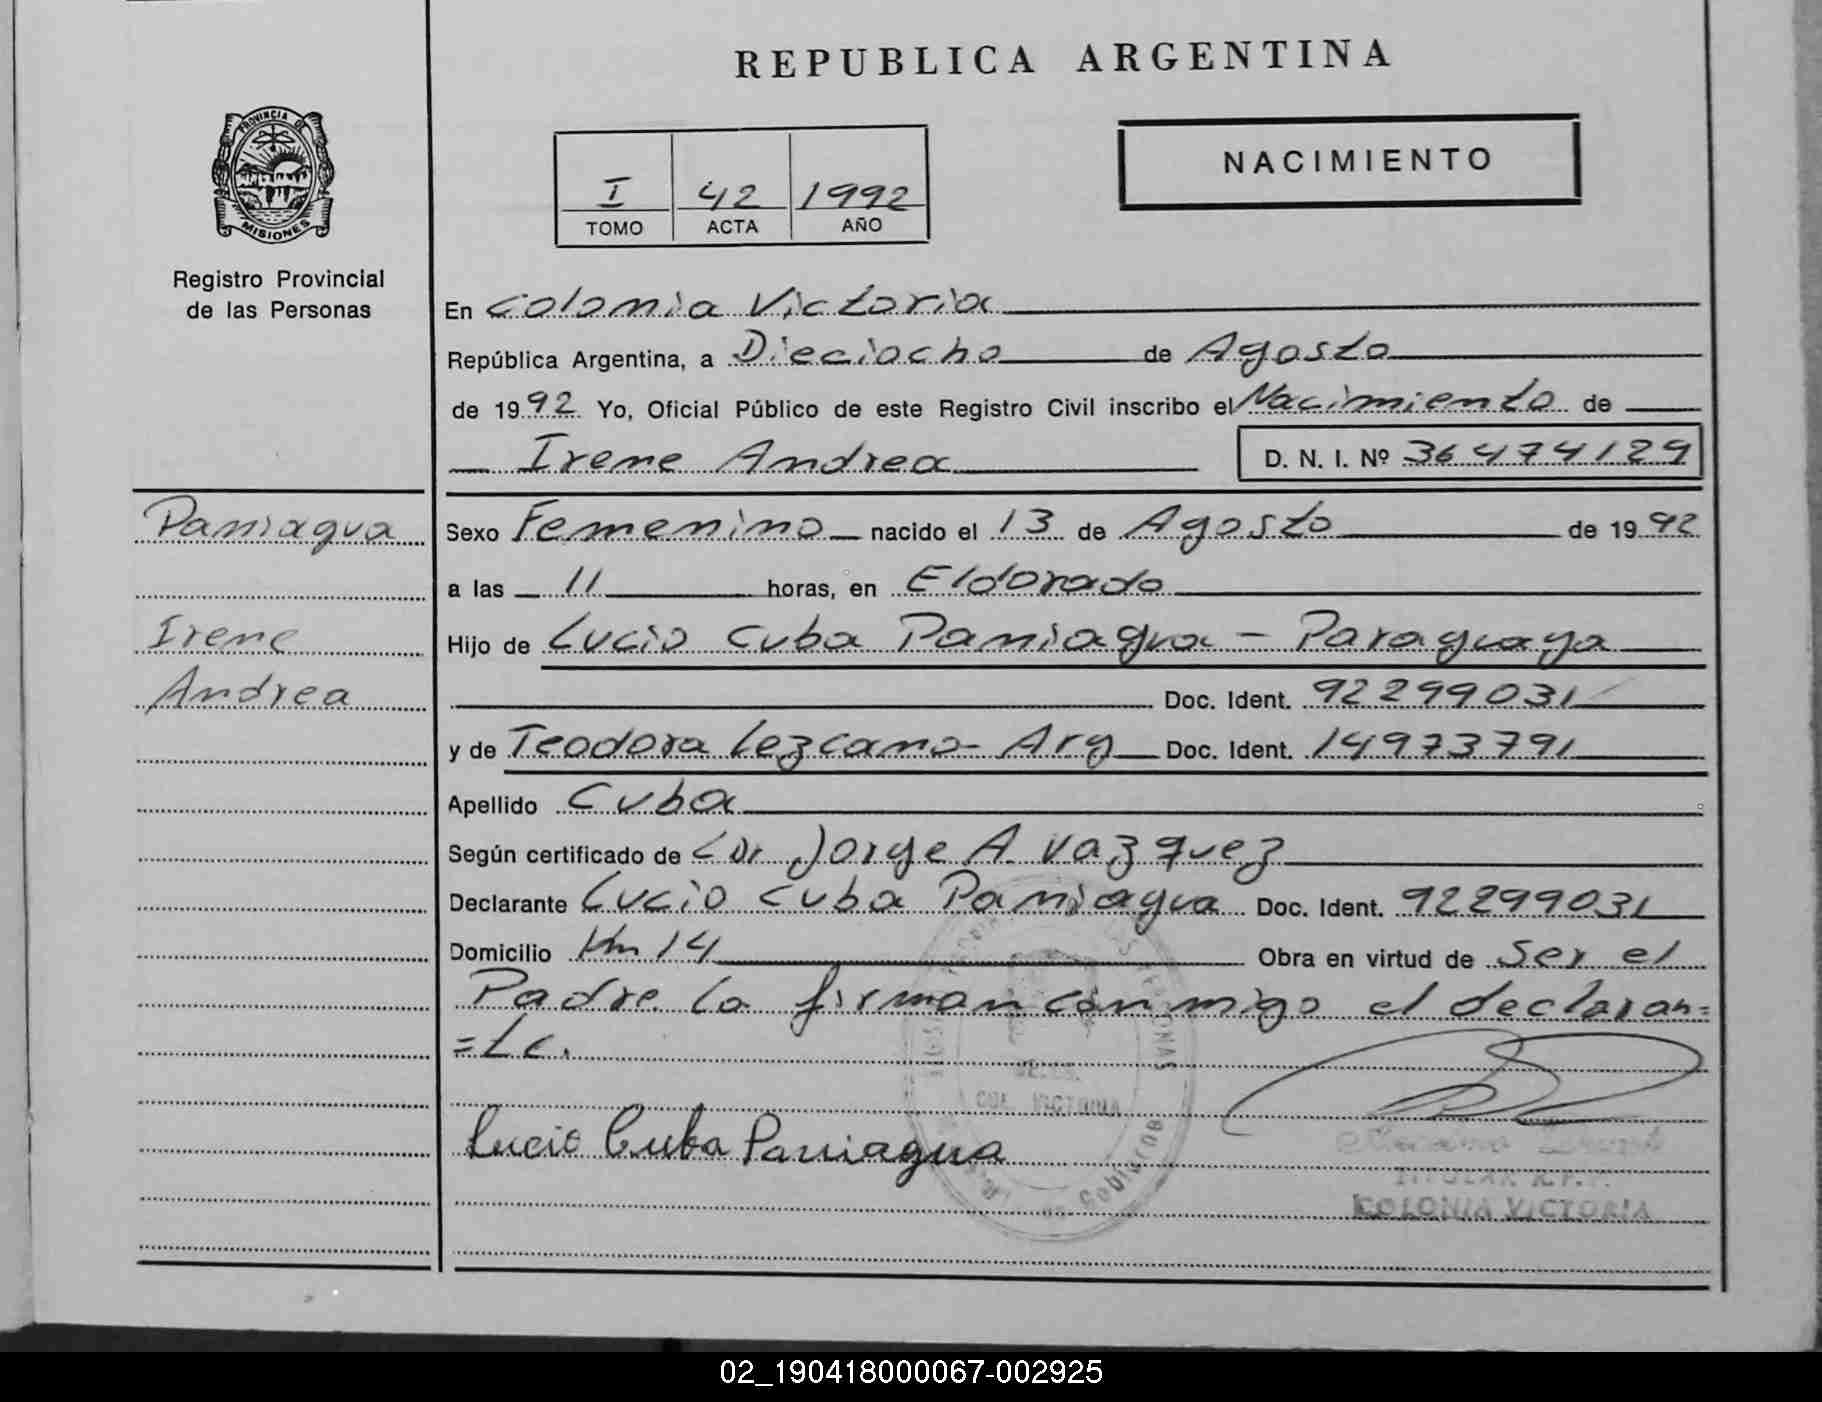 REPUBLICA ARGENTINA
PROVINCIA DE
MISIONES
Registro Provincial
de las Personas
I 42 1992
TOMO ACTA AÑO
NACIMIENTO
En Colonia Victoria
República Argentina, a Dieciocho de Agosto
de 1992 Yo, Oficial Público de este Registro Civil inscribo el Nacimiento de
Irene Andrea D. N. I. Nº 36474129
Paniagua
Irene
Andrea
Sexo Femenino nacido el 13 de Agosto de 1992
a las 11 horas, en Eldorado
Hijo de Lucio Cuba Paniagua - Paraguaya
Doc. Ident. 92299031
y de Teodora Lezcano - Arg Doc. Ident. 14973791
Apellido Cuba
Según certificado de Dr Jorge A Vazquez
Declarante Lucio Cuba Paniagua Doc. Ident. 92299031
Domicilio Km 14 Obra en virtud de Ser el
Padre La firman conmigo el declaran=
=te.
COL. VICTORIA
Lucio Cuba Paniagua
TITULAR R.P.P.
COLONIA VICTORIA
02_190418000067-002925